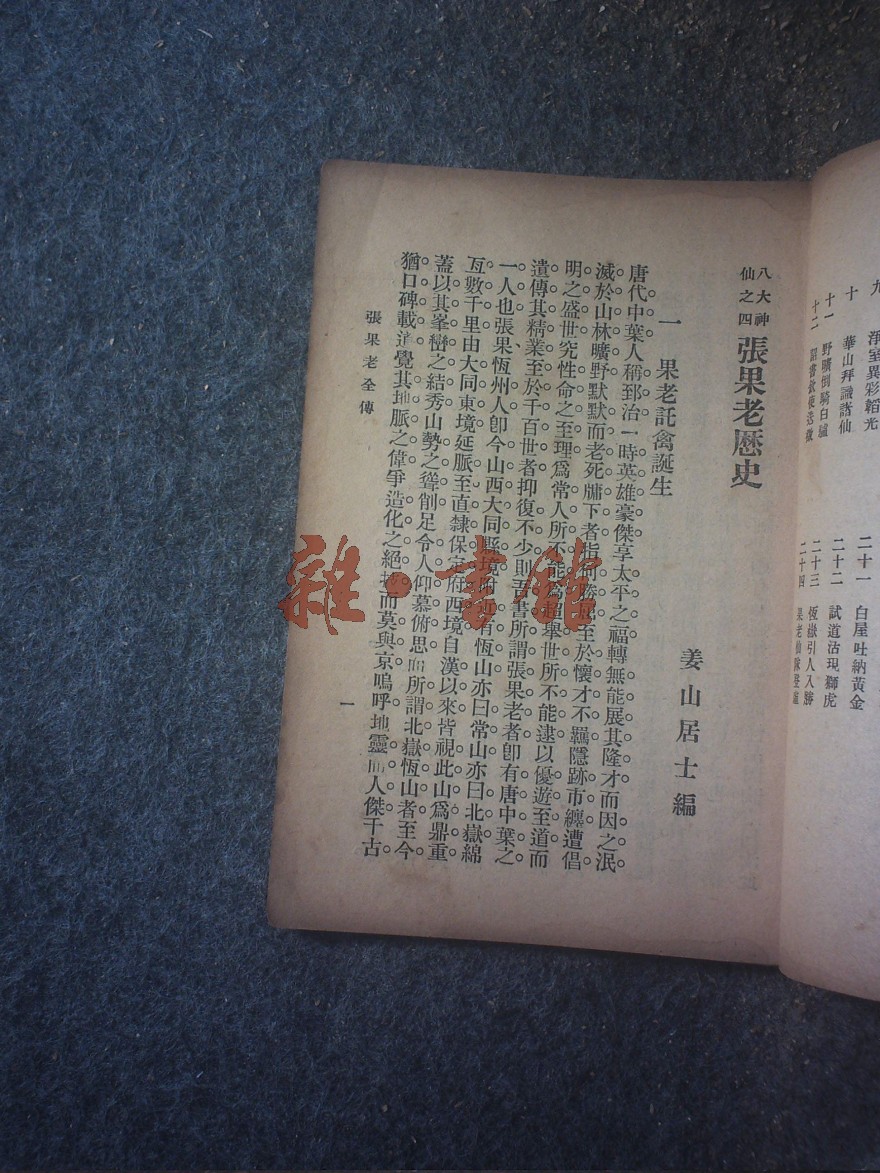 九　淨室異彩韜光
十　華山拜謁諸仙
十一　野曠倒騎白驢
十二　詔書敕使送徵
二十一　白屋吐納黃金
二十二　試道沽現獅虎
二十三　恆嶽引人入勝
二十四　果老仙
八大神
仙之四
張果老歷史
姜山居士編
一　果老託禽誕生
唐代中葉人稱郅治一時英雄豪傑享太平之福轉無能展其隆才而因之泯
滅於山林曠野默默而老死牖下者指何勝屈至於懷才不羈隱跡市纏遭倡
明之盛世究性命之至理爲常人所不能爲趨舉世所不能逮以優遊至道而
遺傳其精業至於千百世者抑復不少則吾書所謂張果老者卽有唐中葉之
一人也張果恆州人卽今山西大同縣境附近有恆山亦曰常山亦曰北嶽綿
亙數千里由大同東境延脈至直隸保定府西境自漢以來皆視此山爲鼎重
蓋以其峯巒之結秀山勢之聳削足令人仰慕俯思而所謂北嶽恆山者至今
猶口碑載道覺其地脈之偉爭造化之絕技而莫與京嗚呼地靈而人傑千古
張果老全傳
一
雜·書館